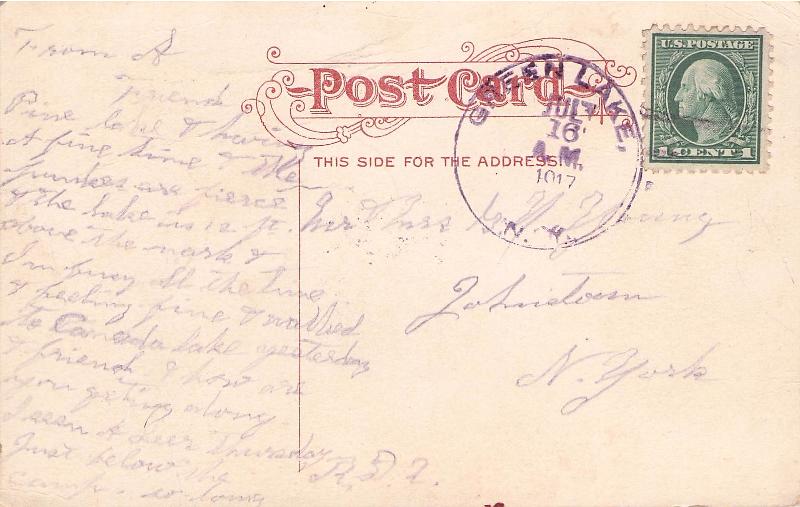 From A
friend
Pine lake & having
A fine time & the
punkes are fierce
& the lake is 2 ft.
above the mark &
I'm busy all the time
& feeling fine & walked
to Canada lake yesterday
& friend & how are
you getting along
I seen A deer Thursday
Just below the
camp. so long
Post Card
THIS SIDE FOR THE ADDRESS
GREEN LAKE,
JUL
16
A.M.
1917
N.Y.
U.S. POSTAGE
1 CENT 1
Mr & Mrs Young
Johnstown
N. York
R,F,D.